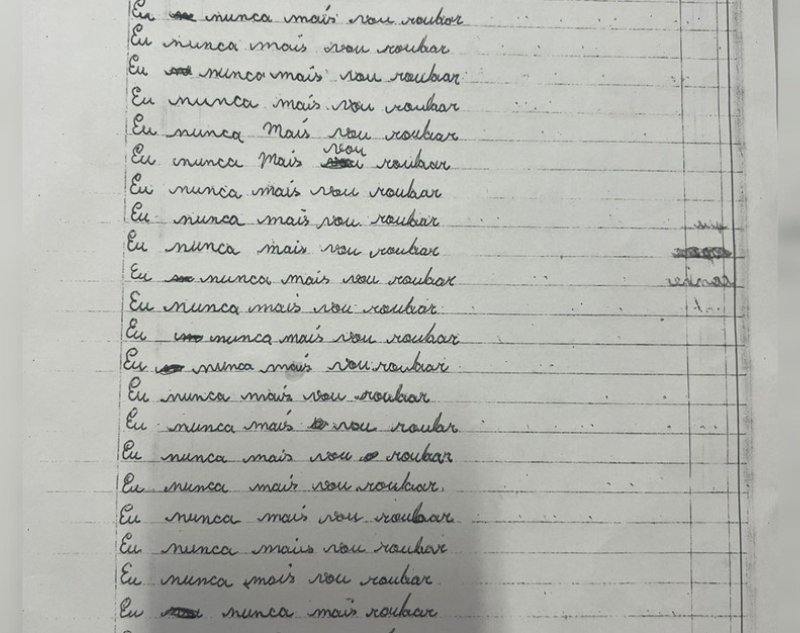 Eu nunca mais vou roubar
Eu nunca mais vou roubar
Eu nunca mais vou roubar
Eu nunca mais vou roubar
Eu nunca Mais vou roubar
Eu nunca Mais vou roubar
Eu nunca mais vou roubar
Eu nunca mais vou roubar
Eu nunca mais vou roubar
Eu nunca mais vou roubar
Eu nunca mais vou roubar
Eu nunca mais vou roubar
Eu nunca mais vou roubar
Eu nunca mais vou roubar
Eu nunca mais vou roubar
Eu nunca mais vou roubar
Eu nunca mais vou roubar
Eu nunca mais vou roubar
Eu nunca mais vou roubar
Eu nunca mais vou roubar
Eu nunca mais roubar